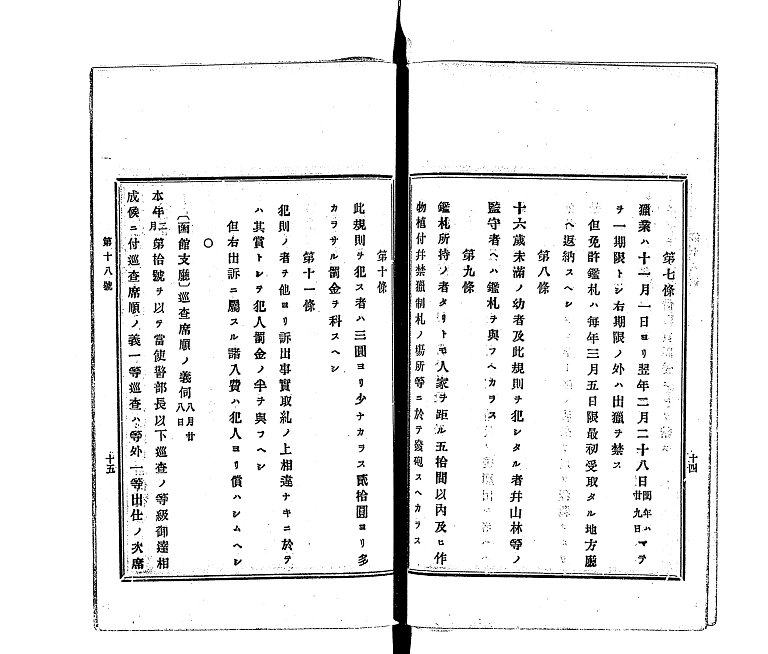 第七條
獵業ハ十一月一日ヨリ翌年二月二十八日閏年ハ廿九日マテ
ヲ一期限トシ右期限ノ外ハ出獵ヲ禁ス
但免許鑑札ハ毎年三月五日限最初受取タル地方廳
ヘ返納スヘシ
第八條
十六歲未滿ノ幼者及此規則ヲ犯シタル者幷山林等ノ
監守者ヘハ鑑札ヲ與フヘカラス
第九條
鑑札所持ノ者タリトモ人家ヲ距ル五拾間以內及ヒ作
物植付幷禁獵制札ノ場所等ニ於テ發砲スヘカラス
十四
第十條
此規則ヲ犯ス者ハ三圓ヨリ少ナカラス貳拾圓ヨリ多
カラサル罰金ヲ科スヘシ
第十一條
犯則ノ者ヲ他ヨリ訴出事實取糺ノ上相違ナキニ於テ
ハ其賞トシテ犯人罰金ノ半ヲ與フヘシ
但右出訴ニ屬スル諸入費ハ犯人ヨリ償ハシムヘシ
○
〔函館支廳〕巡查席順ノ義伺八月廿八日
本年二月第拾號ヲ以テ當使警部長以下巡查ノ等級御達相
成候ニ付巡查席順ノ義一等巡查ハ等外一等出仕ノ次席
第十八號
十五